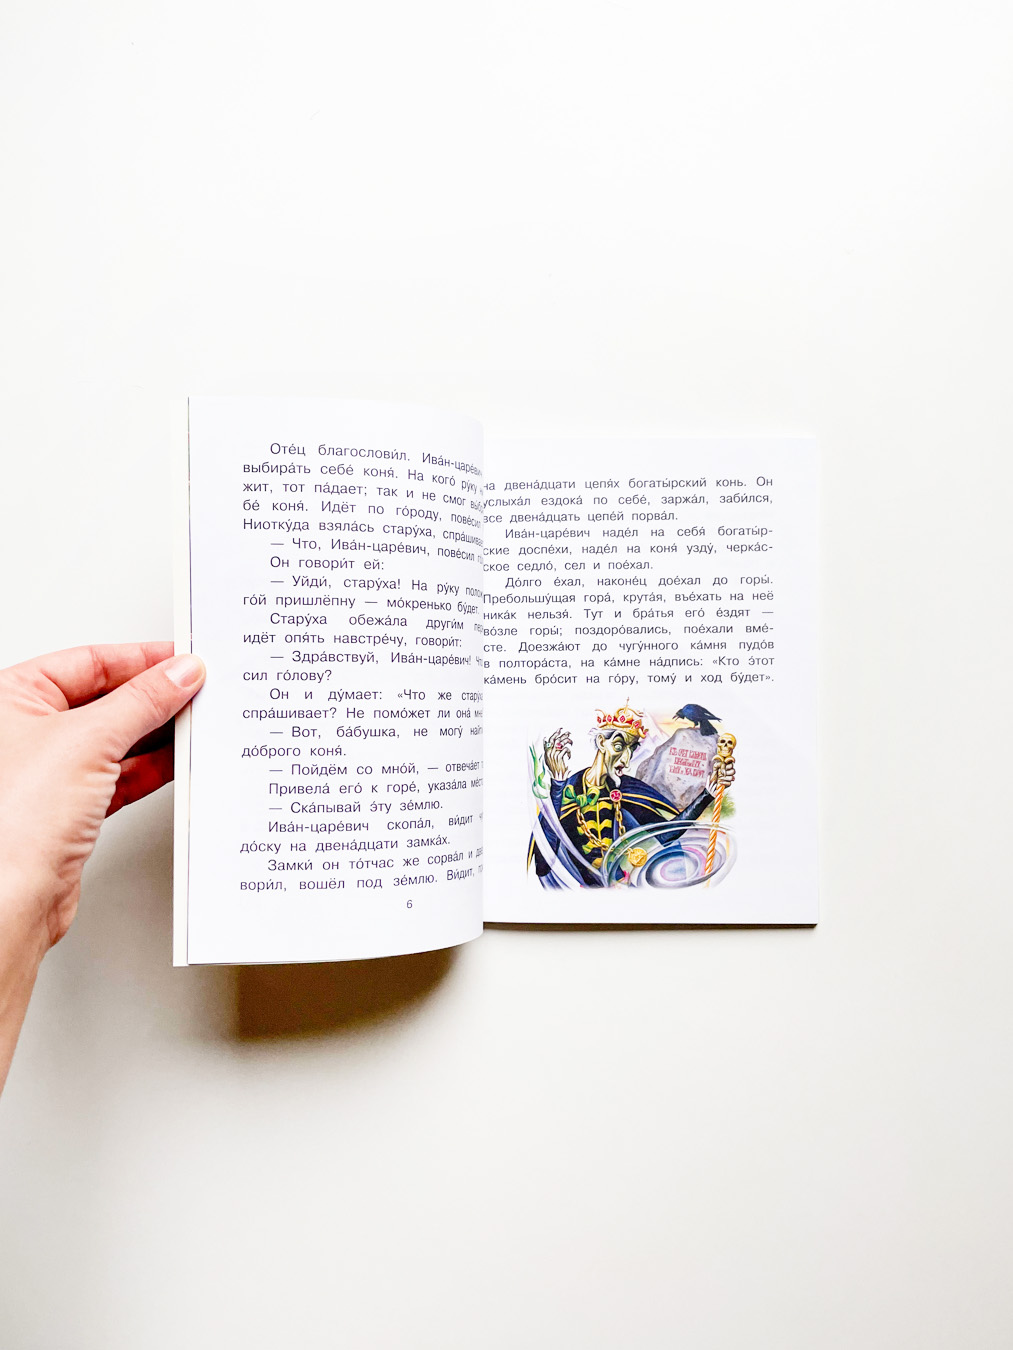 Оте́ц благослови́л. Ива́н-царе́вич
выбира́ть себе́ коня́. На кого́ ру́ку
жит, тот па́дает; так и не смог
бе́ коня́. Идёт по го́роду, пове́сил
Ниотку́да взяла́сь стару́ха, спра́шивает
— Что, Ива́н-царе́вич, пове́сил
Он говори́т ей:
— Уйди́, стару́ха! На ру́ку
го́й пришлёпну — мо́кренько бу́дет.
Стару́ха обежа́ла други́м
идёт опя́ть навстре́чу, говори́т:
— Здра́вствуй, Ива́н-царе́вич!
сил го́лову?
Он и ду́мает: «Что же
спра́шивает? Не помо́жет ли она́
— Вот, ба́бушка, не могу́
до́брого коня́.
— Пойдём со мно́й, — отвеча́ет
Привела́ его́ к горе́, указа́ла
— Ска́пывай э́ту зе́млю.
Ива́н-царе́вич скопа́л, ви́дит
до́ску на двена́дцати замка́х.
Замки́ он то́тчас же сорва́л и
вори́л, вошёл под зе́млю. Ви́дит,
6
на двена́дцати цепя́х богаты́рский конь. Он
услыха́л ездока́ по себе́, заржа́л, заби́лся,
все двена́дцать цепе́й порва́л.
Ива́н-царе́вич наде́л на себя́ богаты́р-
ские доспе́хи, наде́л на коня́ узду́, черка́с-
ское седло́, сел и пое́хал.
До́лго е́хал, наконе́ц дое́хал до горы́.
Пребольшу́щая гора́, крута́я, въе́хать на неё
ника́к нельзя́. Тут и бра́тья его́ е́здят —
во́зле горы́; поздоро́вались, пое́хали вме́-
сте. Доезжа́ют до чугу́нного ка́мня пудо́в
в полтора́ста, на ка́мне на́дпись: «Кто э́тот
ка́мень бро́сит на го́ру, тому́ и ход бу́дет».